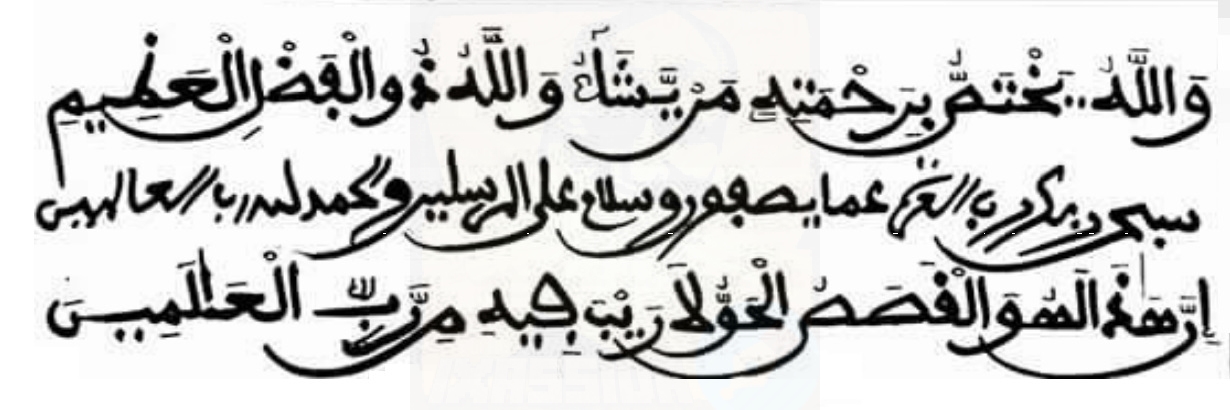 وَاللَّهُ يَخْتَصُّ بِرَحْمَتِهِ مَنْ يَّشَآءُ وَاللَّهُ ذُو الْفَضْلِ الْعَظِيمِ
سبحن ربك رب العزة عما يصفون وسلام على المرسلين والحمد لله رب العالمين
إِنَّ هَٰذَا لَهُوَ الْقَصَصُ الْحَقُّ لَا رَيْبَ فِيهِ مِن رَّبِّ الْعَٰلَمِينَ